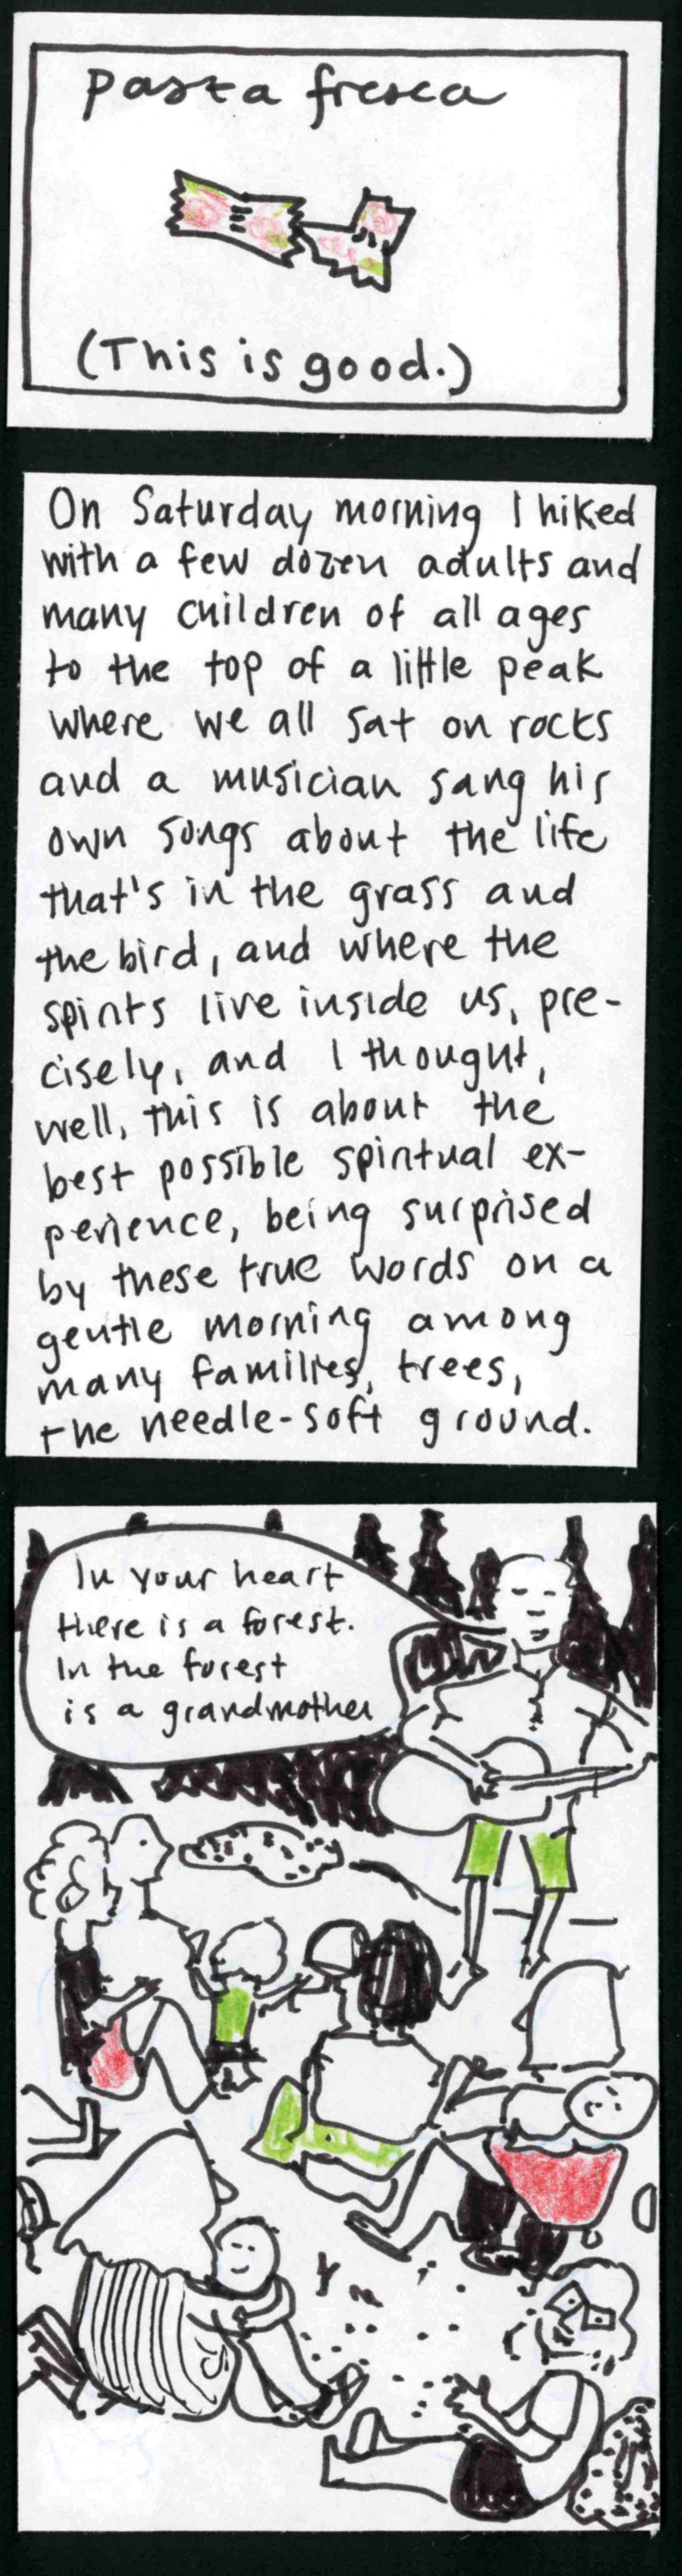 pasta fresca
(This is good.)
On Saturday morning I hiked
with a few dozen adults and
many children of all ages
to the top of a little peak
where we all sat on rocks
and a musician sang his
own songs about the life
that's in the grass and
the bird, and where the
spirits live inside us, pre-
cisely, and I thought,
well, this is about the
best possible spiritual ex-
perience, being surprised
by these true words on a
gentle morning among
many families, trees,
the needle-soft ground.
In your heart
there is a forest.
In the forest
is a grandmother